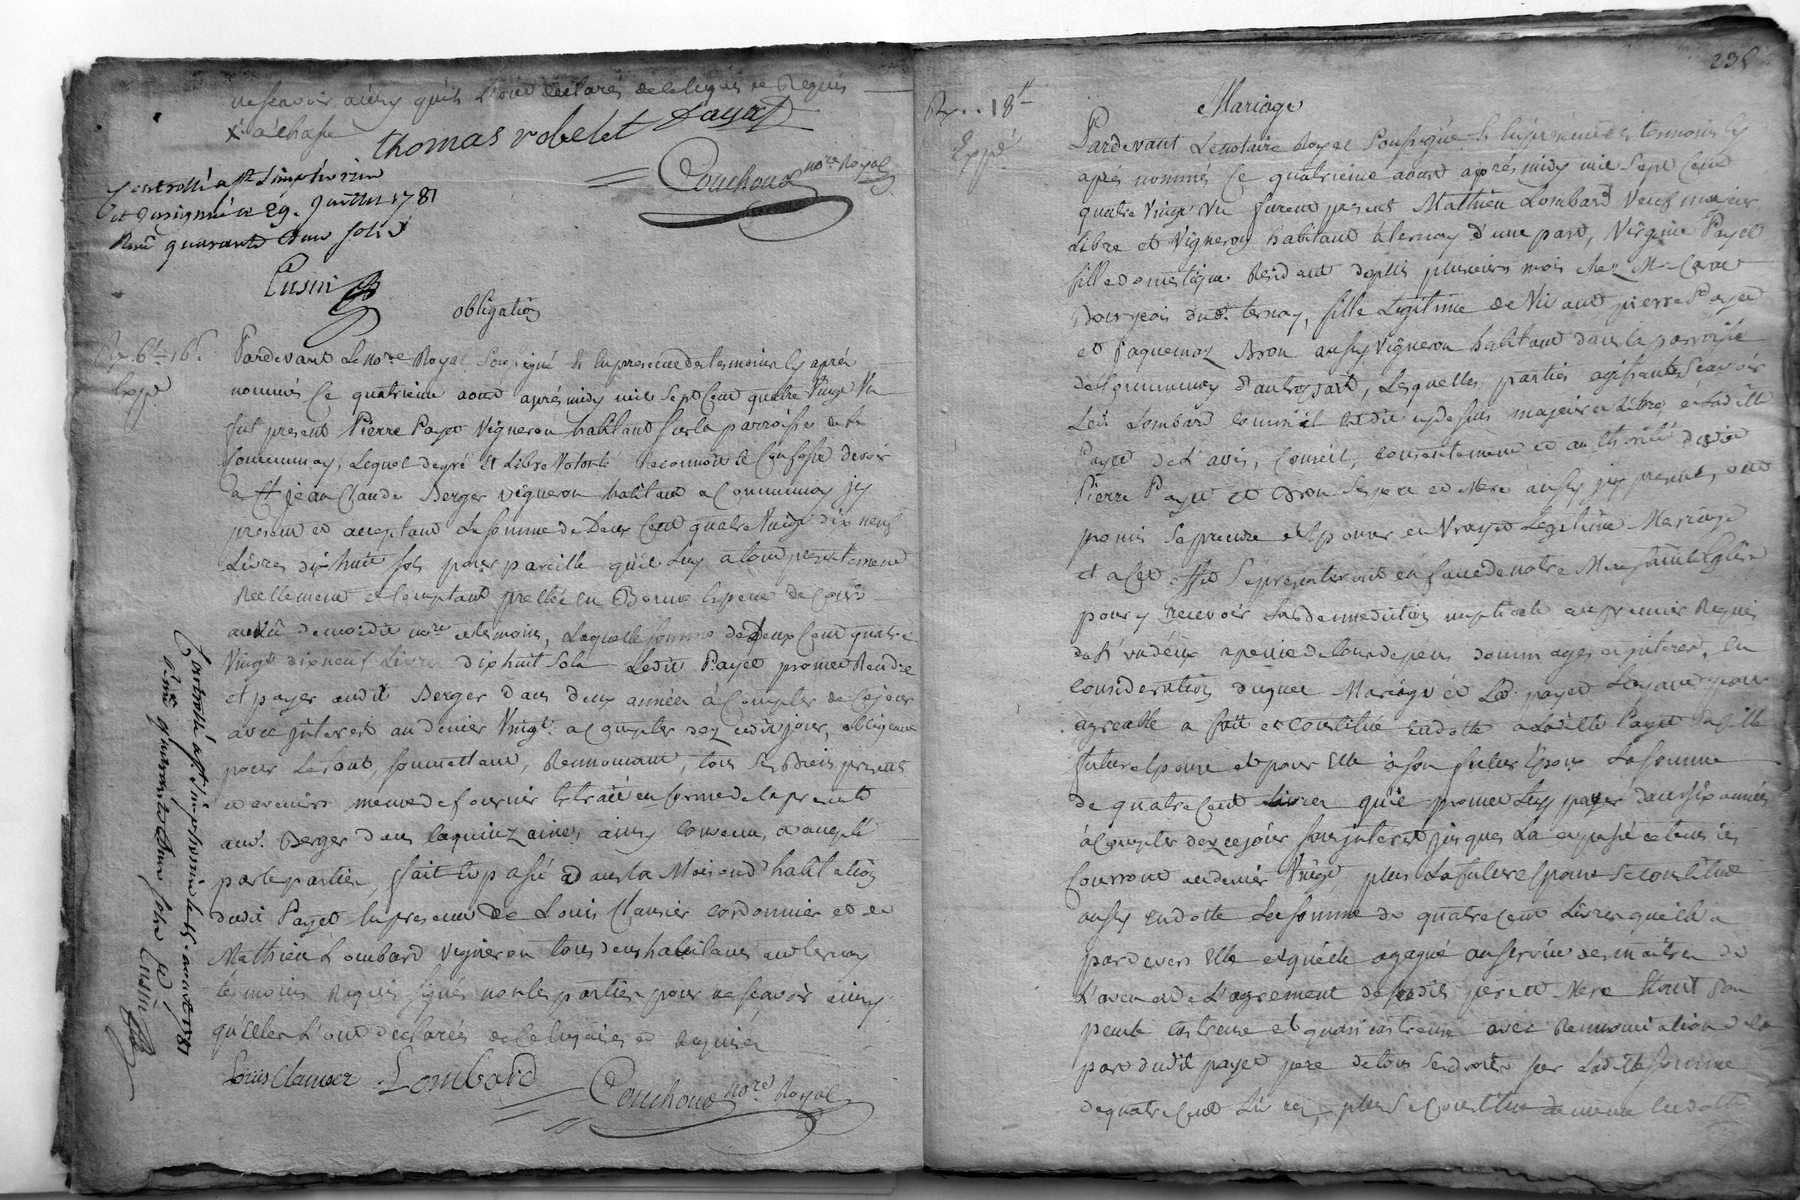 ne scavoir ainsy quils l'ont declarés de ce enquis et Requis
thomas robelet payat
Couchoud nore Royal
Controllé
et insinué le 29. Juillet 1781
Recu quarante deux sols
Cusin
obligation
Pardevant Le nore Royal soussigné et en presence des temoins cy aprés
nommés Ce quatrieme aoust aprés midy mil Sept Cent quatre Vingt Un
fut present Pierre Payet Vigneron habitant sur la parroisse de
Communay, Lequel de gré et Libre Volonté reconnoit et Confesse devoir
a jean Claude Berger vigneron habitant a Communay jcy
present et acceptant La somme de Deux Cent quatre Vingt dix neuf
Livres dix huit sols pour pareille qu'il luy a tout presentement
Reellement et Comptant prettée en Bonne espece de Cours
au vû de moidit nore et temoins, Laquelle somme de deux Cent quatre
Vingt dix neuf Livres dix huit sols Ledit Payet promet Rendre
et payer audit Berger dans deux années à Compter de Cejour
avec jnterest au denier Vingt a Compter dez cedit jour, obligeant
pour Le tout, soumettant, Rennonceant, tous ses Biens presents
et avenirs meme de fournir Extrait en forme de la presente
aud. Berger dans la quinzaine, ainsy Convenu, et accepté
par les parties, fait et passé dans la Maison d'habitation
dudit Payet En presence de Louis Clausier Cordonnier et de
Mathieu Lombard vigneron tous deux habitants audit ternay
témoins Requis signés non les parties pour ne scavoir ainsy
qu'elles l'ont declarés de ce enquises et Requises
Louis Clauzier Lombard
Couchoud nore Royal
Controllé
Recu quarante deux sols
Cusin
235
18
Mariage
Pardevant Le notaire Royal Soussigné et En presence des temoins cy
aprés nommés Ce quatrieme aoust aprés midy mil Sept Cent
quatre Vingt Un furent present Mathieu Lombard Veuf majeur
Libre et Vigneron habitant a ternay d'une part, Virginie Payet
fille domestique Residant depuis plusieurs mois chez Mr
Bourgeois dudt ternay, fille Legitime de Vivant pierre Payet
et jaquemaz Bron aussy Vigneron habitant dans la parroisse
de Communay d'autre part, Lesquelles parties agissantes Scavoir
Led. Lombard comm'il est dit cy dessus majeur et Libre, et Ladite
Payet de L'avis, Conseil, consentement et authorité dudit
Pierre Payet et Bron Ses pere et Mere aussy jcy present, ont
promis Se prendre et Epouser en Vray et Legitime Mariage
et a Cet effet Se presenteront en face de notre Mere Sainte Eglise
pour y recevoir La Bennediction nuptiale au premier Requis
de L'un d'eux a peine de tous depens dommages et interest, En
consideration duquel Mariage et Led. payet L'ayant pour
agreable a fait et constitué En dotte a Ladite Payet Sa fille
future Epouse et pour Elle à Son futur Epoux La Somme
de quatre Cent Livres qu'il promet Leur payer dans six années
à Compter dez cejour sans jnterest jusques La et passé ce tems ils
Courront au denier Vingt, plus La future Epouse Se constitue
aussy En dotte La Somme de quatre Cent Livres quelle a
pardevers Elle et quelle a gagné au service des maitres de
L'aveu et de L'agrement de Sesdits pere et Mere Etant Son
pecule Castrense et quasi castrense avec Rennonciation de la
part dudit payet pere de tous Ses droits sur Ladite Somme
de quatre Cent Livres, plus Se Constitue de meme En dotte